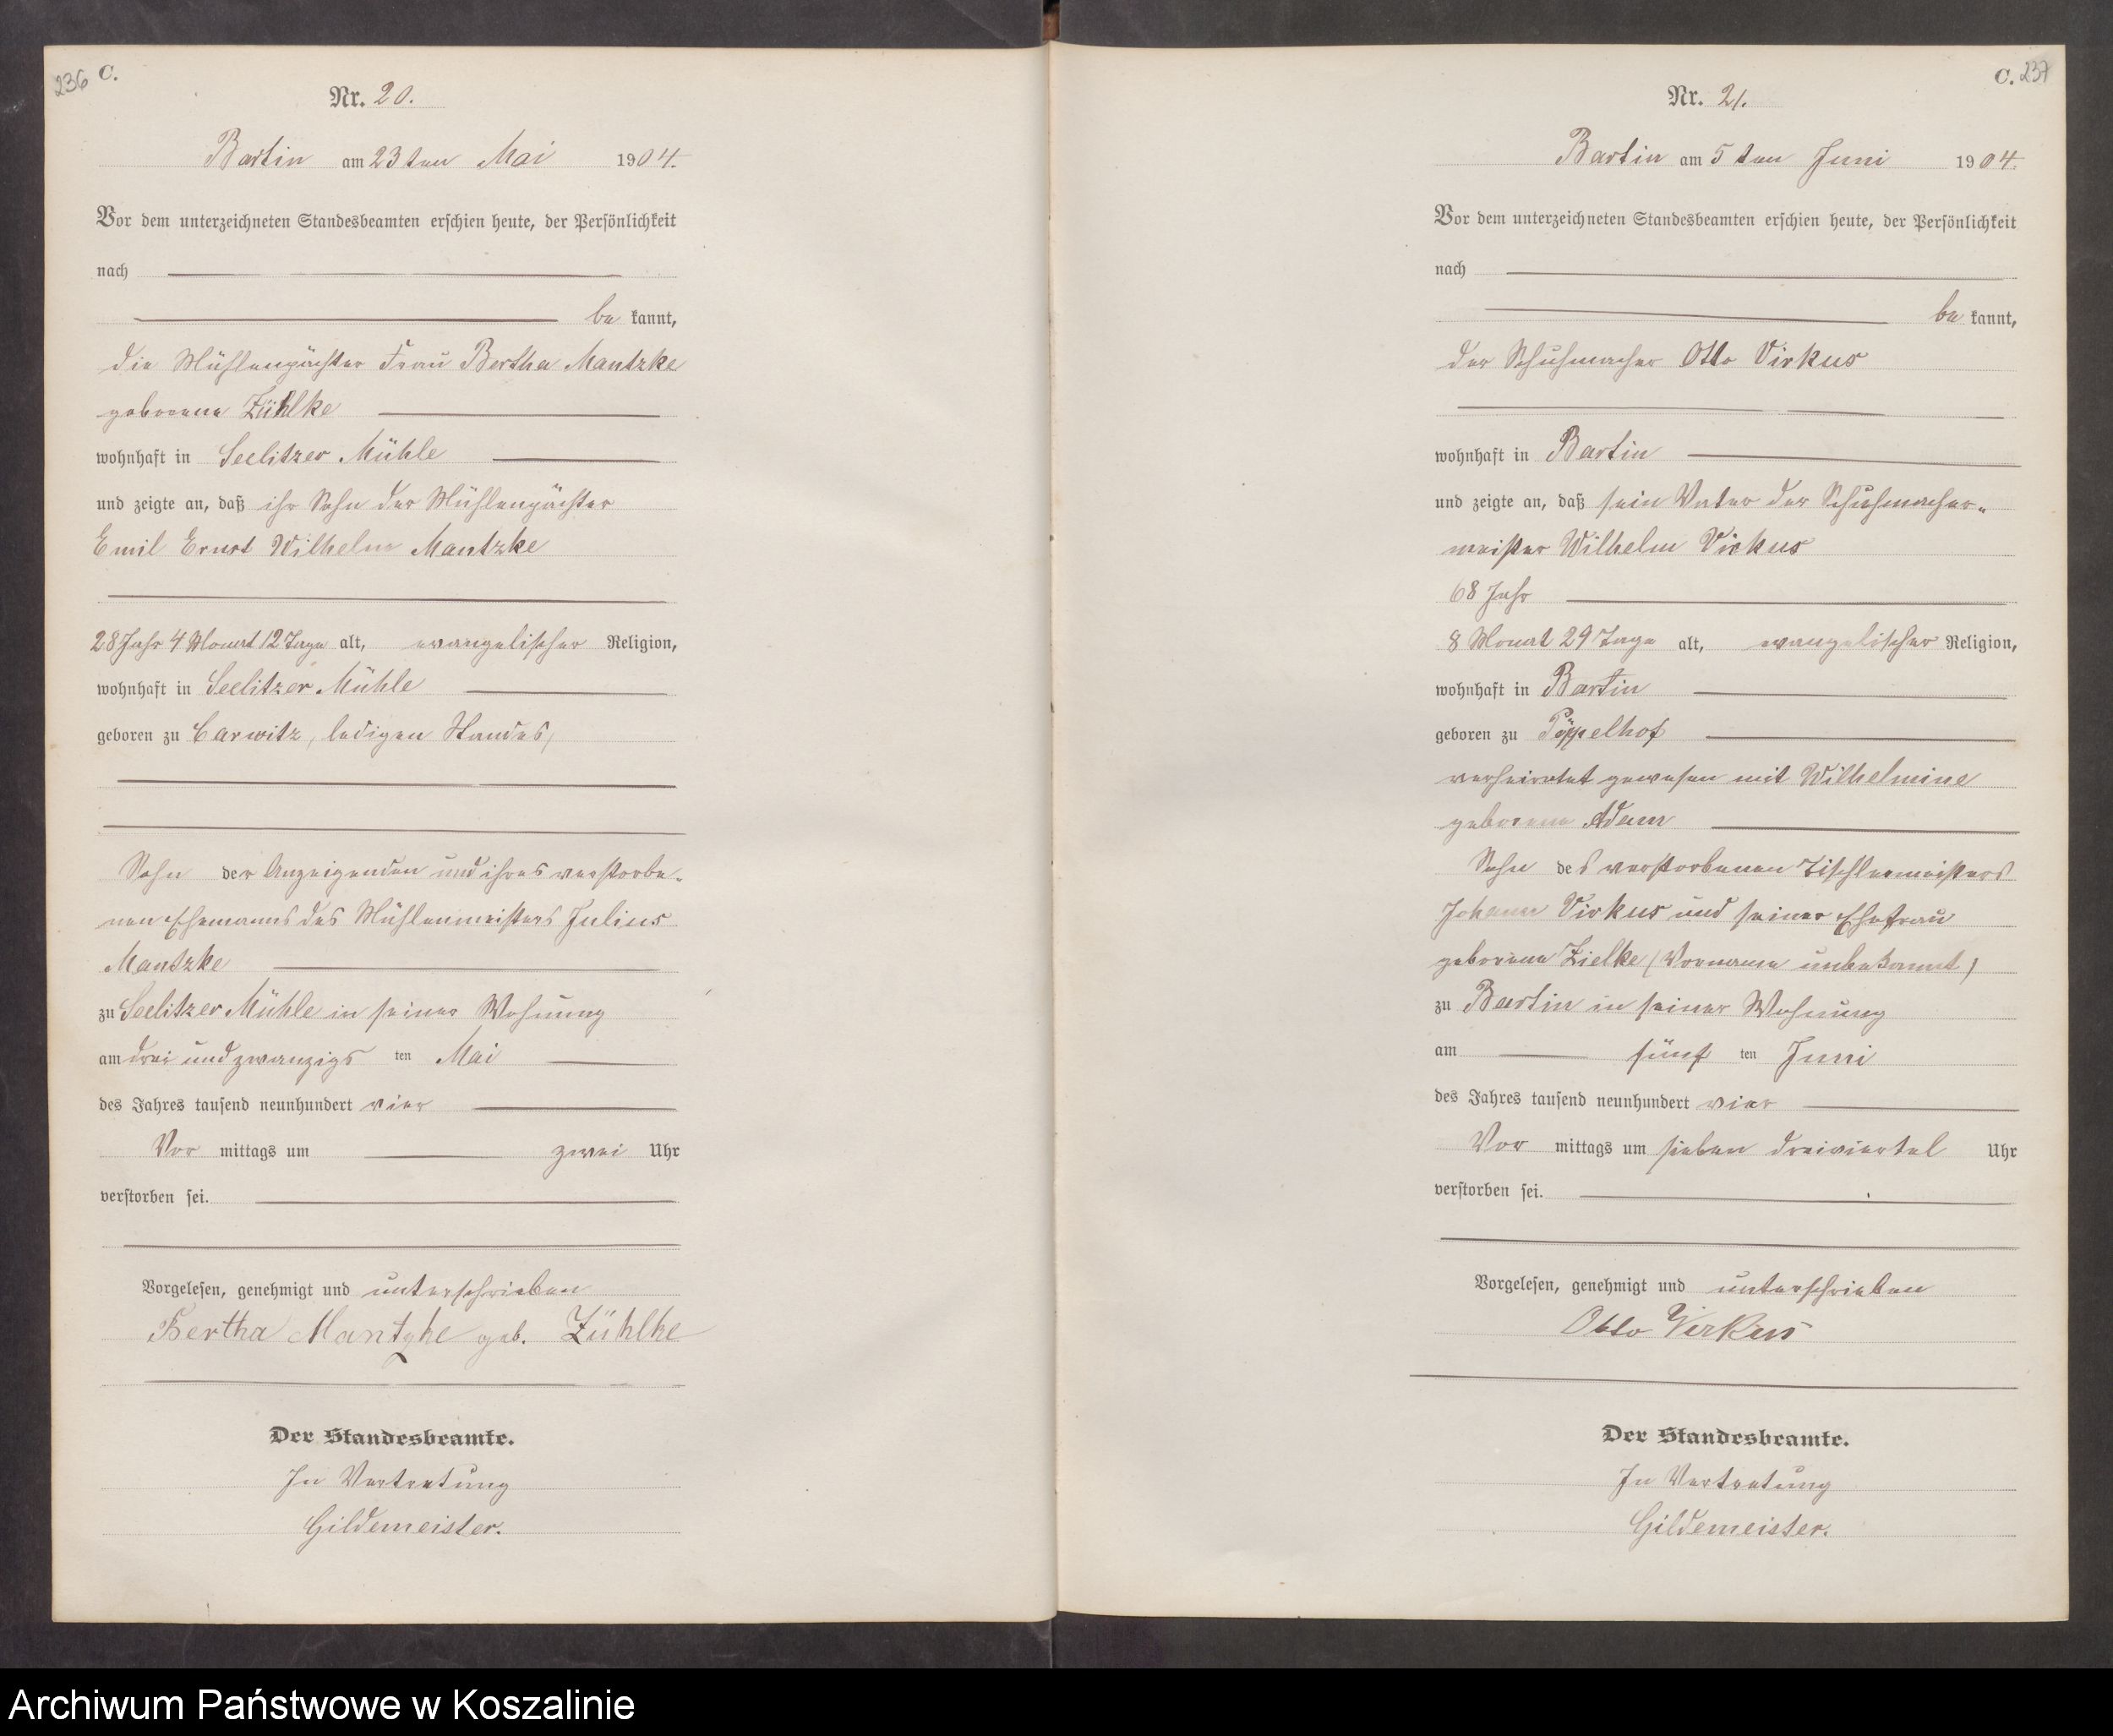 236 C.
Nr. 20.
Bartin am 23ten Mai 1904.
Vor dem unterzeichneten Standesbeamten erschien heute, der Persönlichkeit
nach
be kannt,
die Mühlenpächter Frau Bertha Mantzke
geborene Zühlke
wohnhaft in Seelitzer Mühle
und zeigte an, daß ihr Sohn der Mühlenpächter
Emil Ernst Wilhelm Mantzke
28 Jahr 4 Monat 12 Tage alt, evangelischer Religion,
wohnhaft in Seelitzer Mühle
geboren zu Carwitz, ledigen Standes,
Sohn der Anzeigenden und ihres verstorbe-
nen Ehemanns des Mühlenmeisters Julius
Mantzke
zu Seelitzer Mühle in seiner Wohnung
am drei und zwanzigs ten Mai
des Jahres tausend neunhundert vier
Vor mittags um zwei Uhr
verstorben sei.
Vorgelesen, genehmigt und unterschrieben
Bertha Mantzke geb. Zühlke
Der Standesbeamte.
In Vertretung
Gildemeister.
C. 237
Nr. 21.
Bartin am 5ten Juni 1904.
Vor dem unterzeichneten Standesbeamten erschien heute, der Persönlichkeit
nach
be kannt,
der Schuhmacher Otto Virkus
wohnhaft in Bartin
und zeigte an, daß sein Vater der Schuhmacher-
meister Wilhelm Virkus
68 Jahr
8 Monat 29 Tage alt, evangelischer Religion,
wohnhaft in Bartin
geboren zu Pöppelhof
verheiratet gewesen mit Wilhelmine
geborene Adam
Sohn des verstorbenen Tischlermeisters
Johann Virkus und seiner Ehefrau
geborene Zielke (Vorname unbekannt)
zu Bartin in seiner Wohnung
am fünf ten Juni
des Jahres tausend neunhundert vier
Vor mittags um sieben dreiviertel Uhr
verstorben sei.
Vorgelesen, genehmigt und unterschrieben
Otto Virkus
Der Standesbeamte.
In Vertretung
Gildemeister.
Archiwum Państwowe w Koszalinie